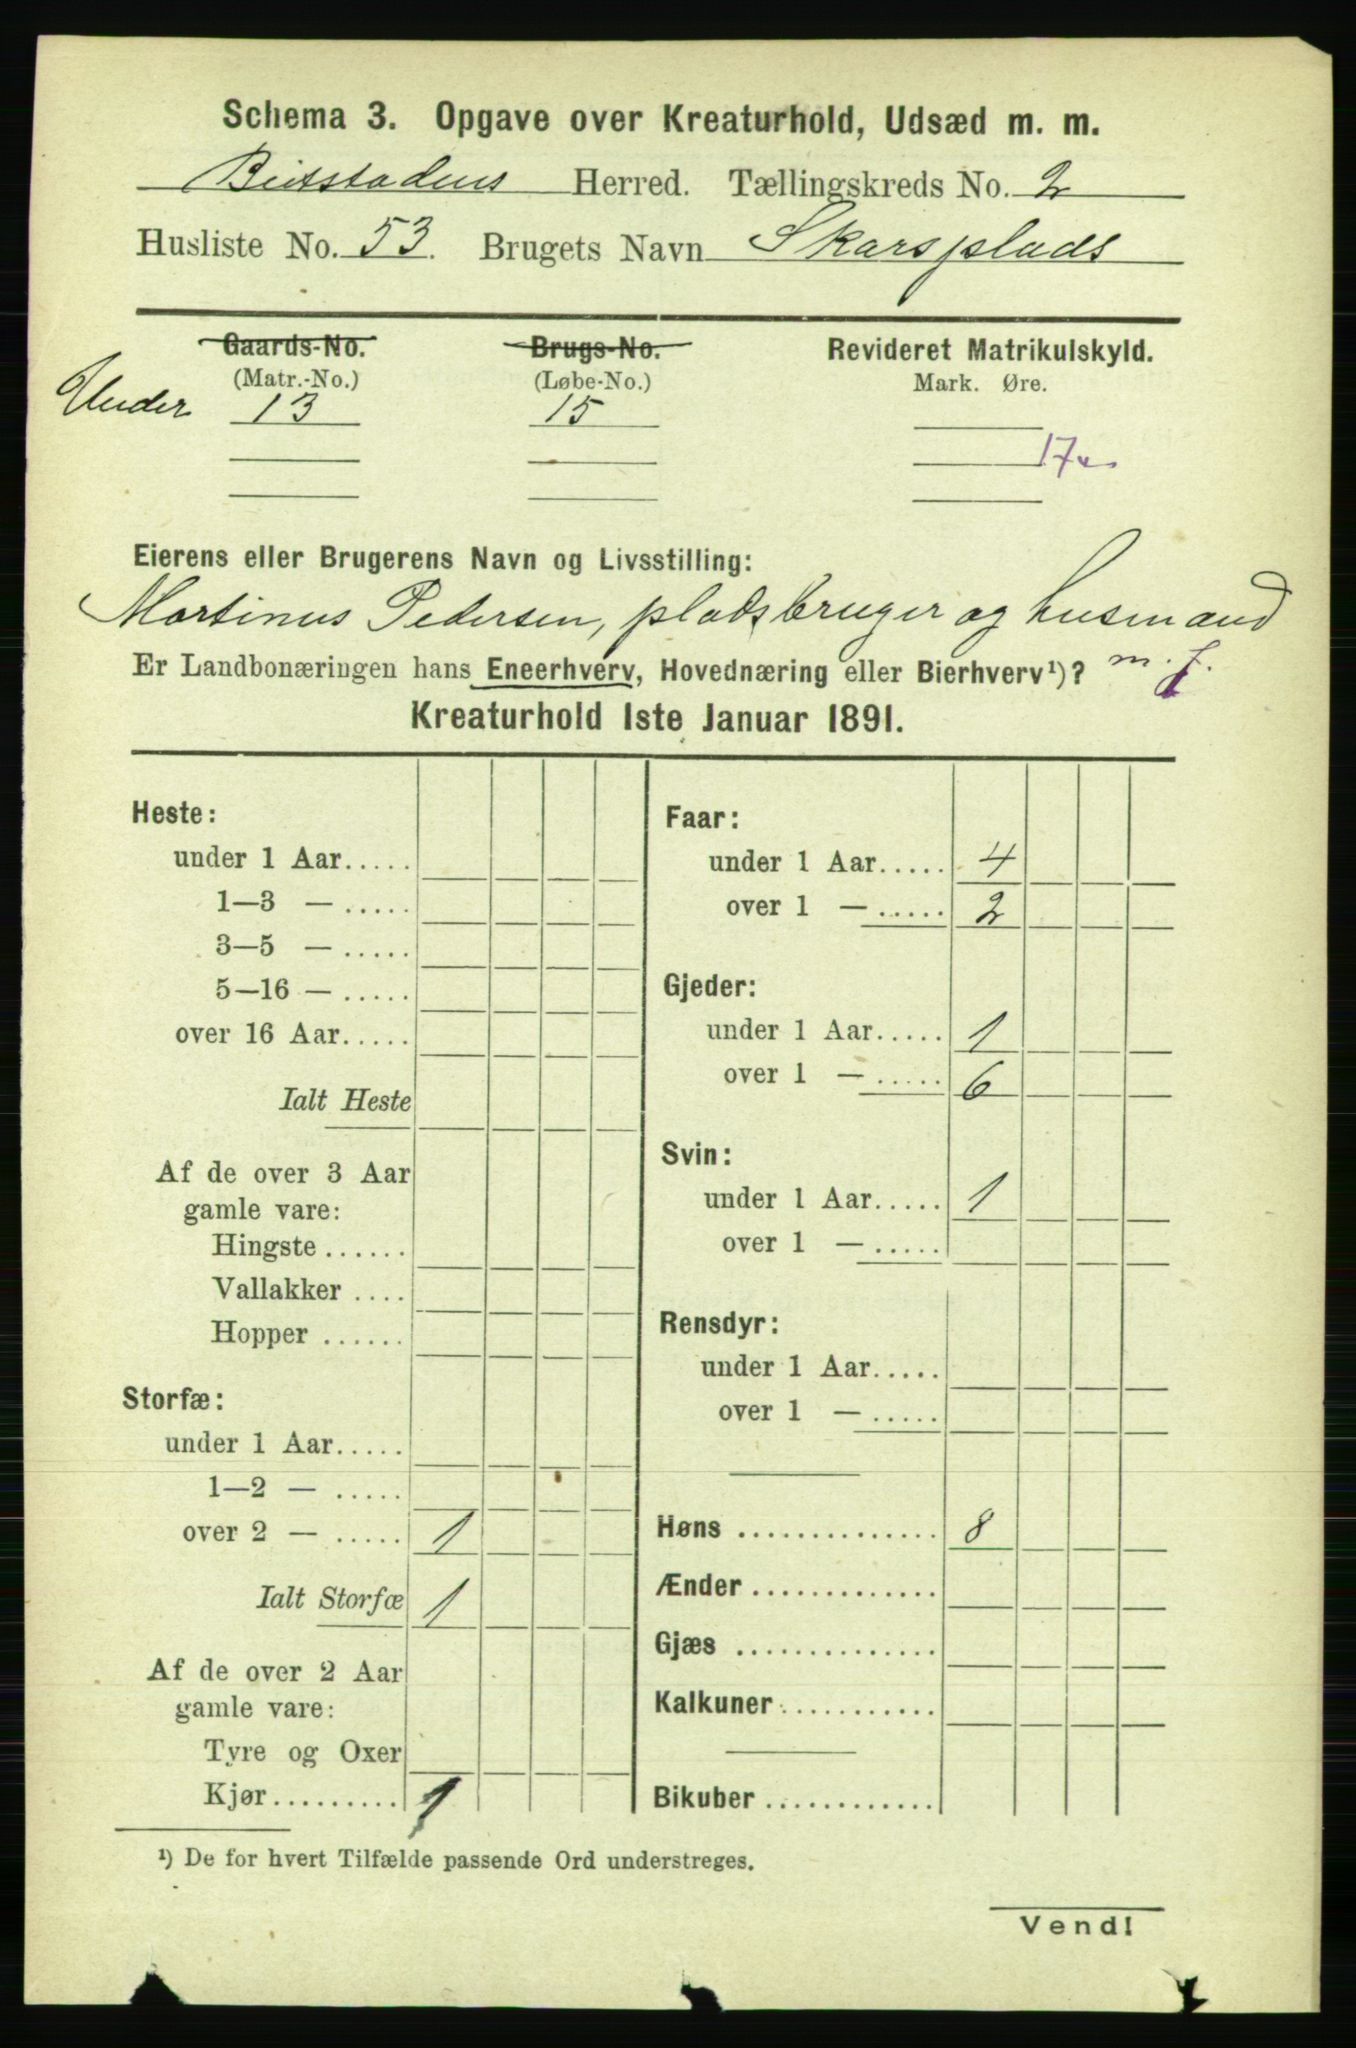 Schema 3. Opgave over Kreaturhold, Udsæd m. m.
Beitstadens Herred. Tællingskreds No. 2
Husliste No. 53. Brugets Navn Skarsplads
Gaards-No. Brugs-No. Revideret Matrikulskyld.
(Matr.-No.) (Løbe-No.) Mark. Øre.
Under 13 15
17
Eierens eller Brugerens Navn og Livsstilling:
Martinus Pedersen, pladsbruger og husmand
m. j.
Er Landbonæringen hans Eneerhverv, Hovednæring eller Bierhverv¹)?
Kreaturhold 1ste Januar 1891.
Heste:
under 1 Aar.....
1—3 — .....
3—5 — .....
5—16 — .....
over 16 Aar.....
Ialt Heste
Af de over 3 Aar
gamle vare:
Hingste ......
Vallakker ....
Hopper ......
Storfæ:
under 1 Aar.....
1—2 — .....
over 2 — ..... 1
Ialt Storfæ 1
Af de over 2 Aar
gamle vare:
Tyre og Oxer
Kjør.......... 1
Faar:
under 1 Aar..... 4
over 1 — ...... 2
Gjeder:
under 1 Aar..... 1
over 1 — ..... 6
Svin:
under 1 Aar..... 1
over 1 — .....
Rensdyr:
under 1 Aar.....
over 1 — .....
Høns .............. 8
Ænder .............
Gjæs ..............
Kalkuner ...........
Bikuber ............
¹) De for hvert Tilfælde passende Ord understreges.
Vend!